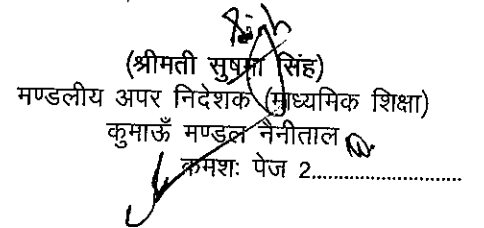 (श्रीमती सुषमा सिंह)
मण्डलीय अपर निदेशक (माध्यमिक शिक्षा)
कुमाऊँ मण्डल नैनीताल
क्रमशः पेज 2..........................